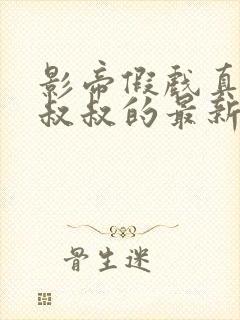 影帝假戏真
叔叔的最新
骨生迷